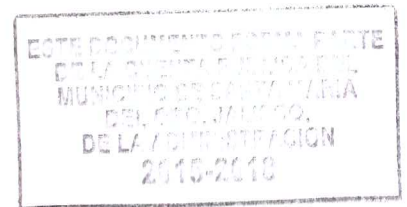 ESTE DOCUMENTO FORMA PARTE
DE LA CUENTA PUBLICA DEL
MUNICIPIO DE SANTA MARIA
DEL ORO, JALISCO,
DE LA ADMINISTRACION
2015-2018